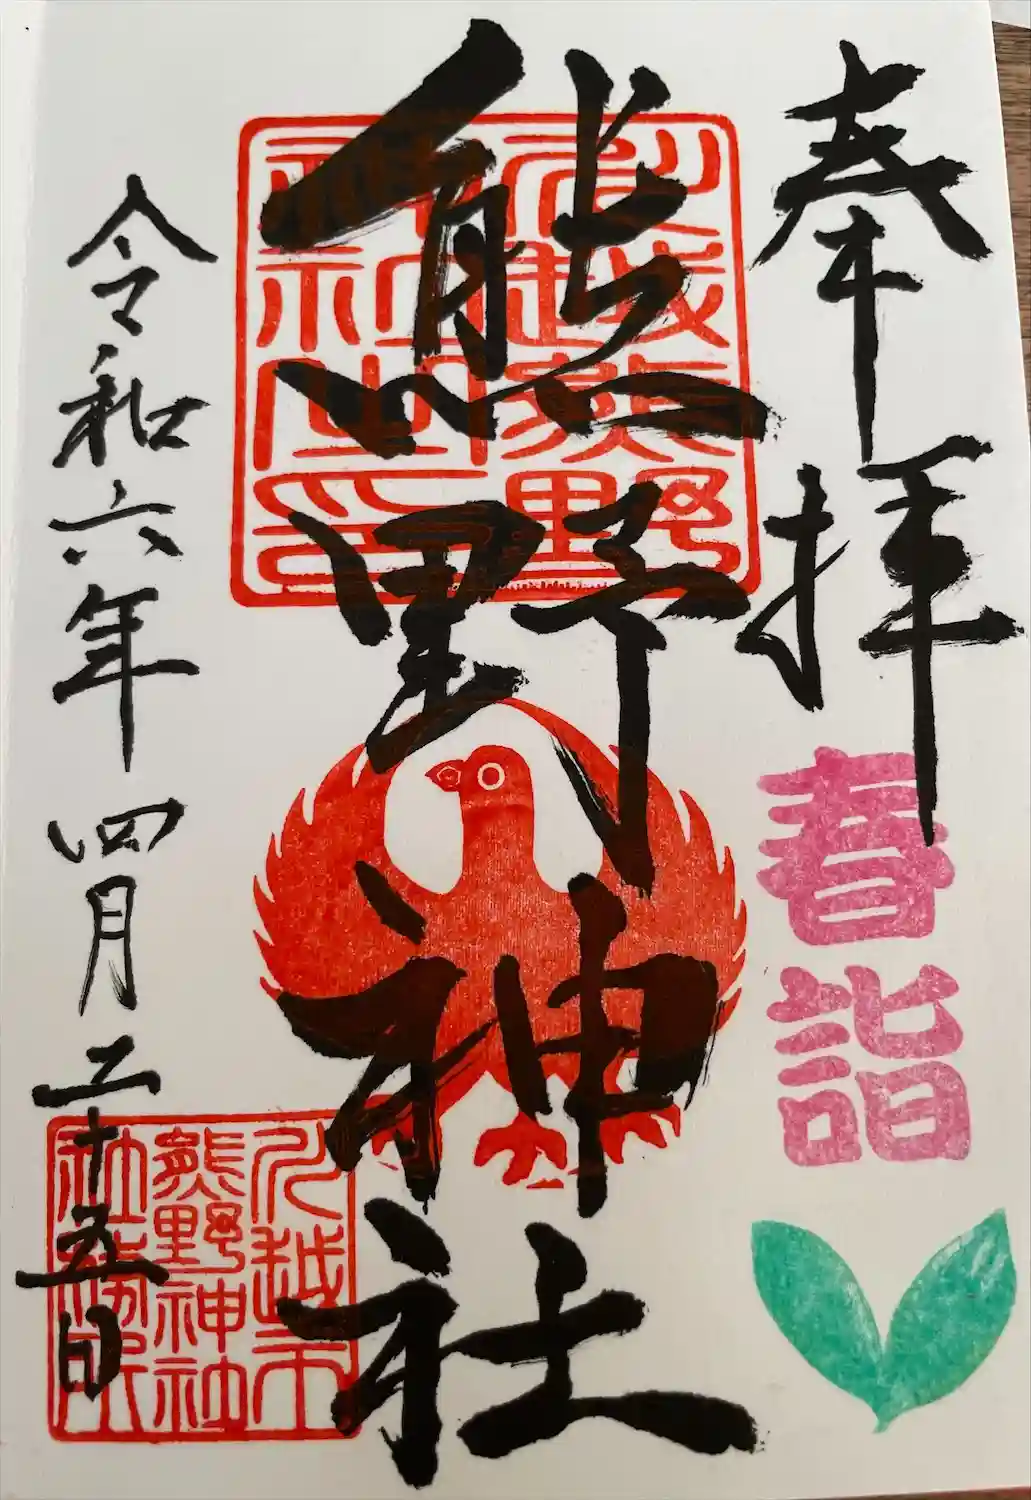 奉拝
春詣
川越熊野
神社之印
熊野神社
令和六年 四月二十五日
川越市
熊野神社
社務所